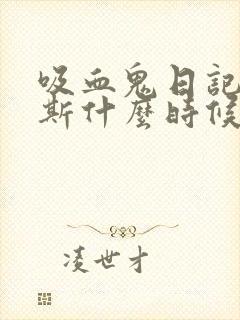 吸血鬼日記
斯什麼時候
凌世才